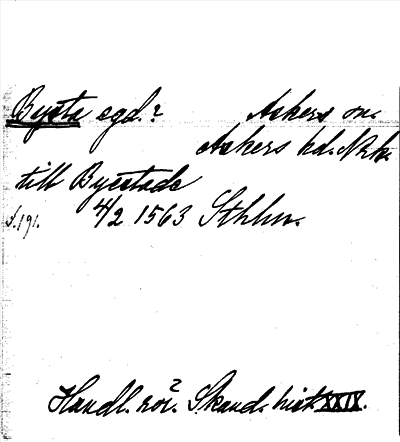 Bysta egd.? Askers sn.
Askers hd. Nrk.
till Byestade
4/2 1563 Sthlm.
s. 191.
Handl. rör. Skand. hist. XXIX.